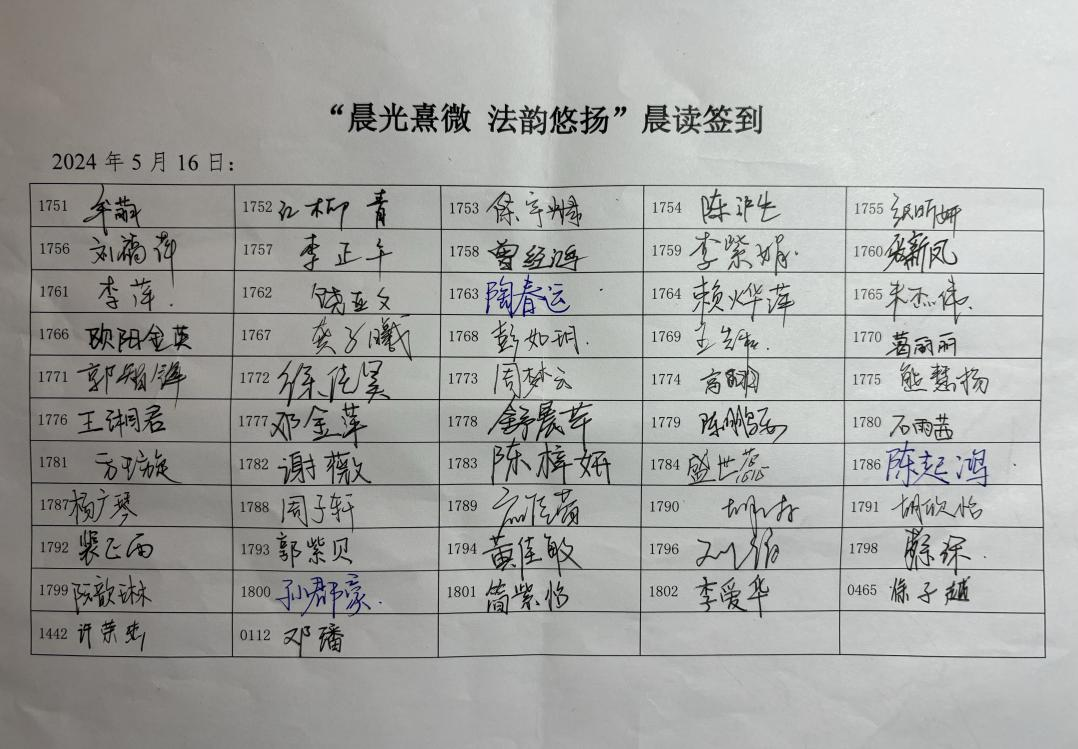 “晨光熹微 法韵悠扬”晨读签到
2024 年 5 月 16 日：
1751 牟萌 1752 江柳青 1753 1754 陈沪生 1755
1756 刘福萍 1757 李正午 1758 曾经海 1759 李紫娟 1760 新凤
1761 李萍 1762 饶亚文 1763 陶春运 1764 赖烨萍 1765 朱杰伟
1766 欧阳金英 1767 龚子曦 1768 彭如玥 1769 1770 葛丽丽
1771 郭智锋 1772 徐佳昊 1773 周梦云 1774 高 1775 熊慧杨
1776 王湖君 1777 邓金萍 1778 舒晨芊 1779 陈鹏 1780 石雨茜
1781 方璇 1782 谢薇 1783 陈梓妍 1784 盛世蕊 1786 陈起鸿
1787 杨广琴 1788 周子轩 1789 1790 1791 胡欣怡
1792 裴正西 1793 郭紫贝 1794 黄佳敏 1796 1798
1799 陈歆琳 1800 孙群豪 1801 简紫怡 1802 李爱华 0465 徐子越
1442 许荣 0112 邓璠